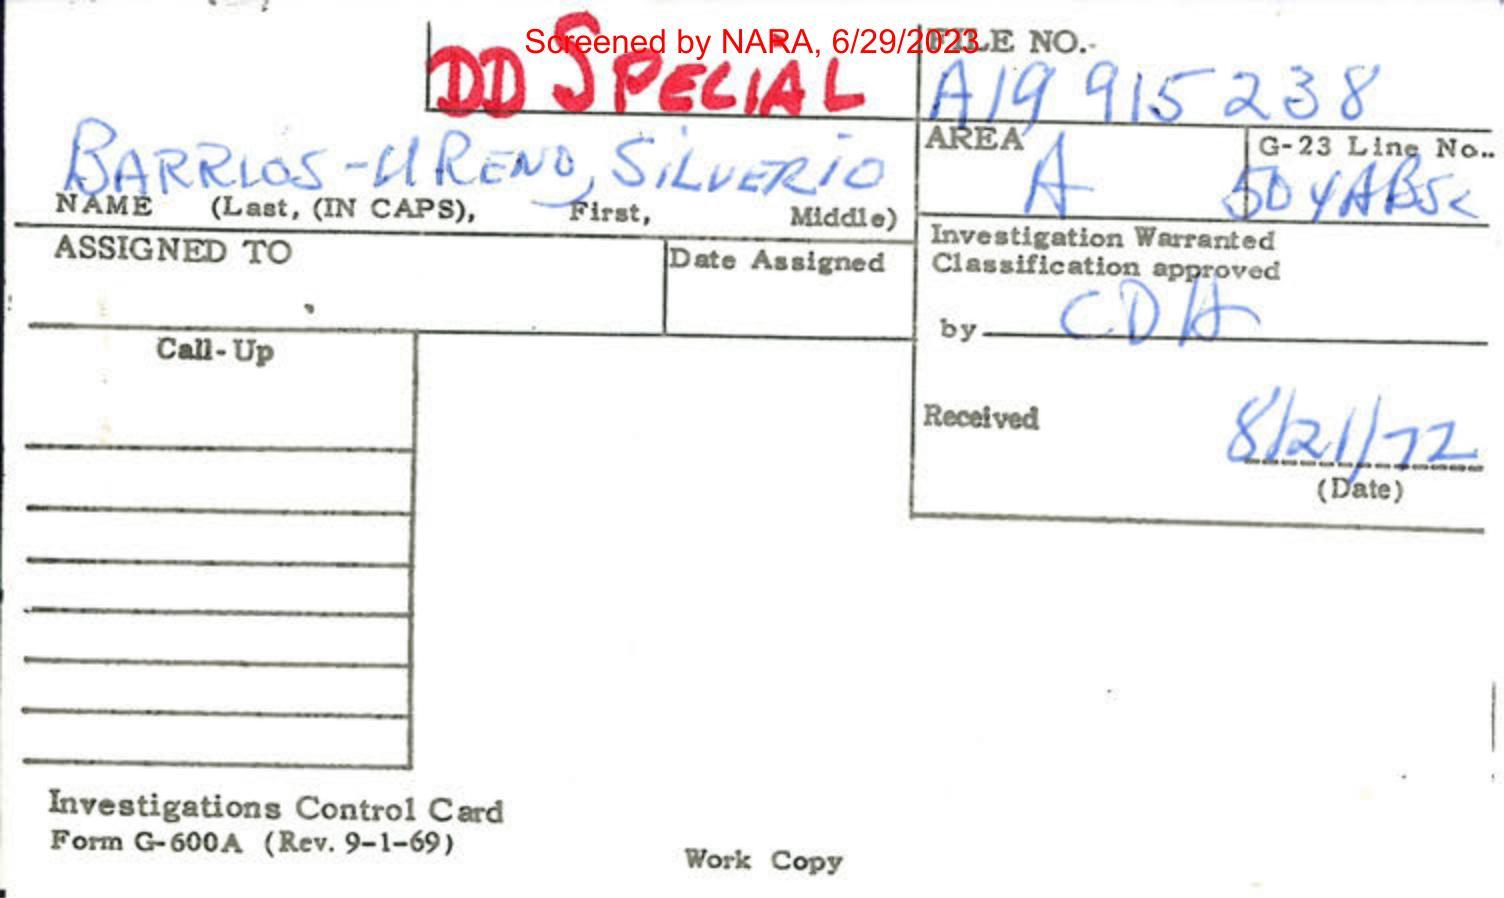 Screened by NARA, 6/29/2023
DD SPECIAL
FILE NO.
A19 915 238
AREA
A
G-23 Line No.
BARRIOS-URENO, SILVERIO
NAME (Last, (IN CAPS), First, Middle)
ASSIGNED TO
Date Assigned
Investigation Warranted
Classification approved
by CDA
Call-Up
Received
8/21/72
(Date)
Investigations Control Card
Form G-600A (Rev. 9-1-69)
Work Copy